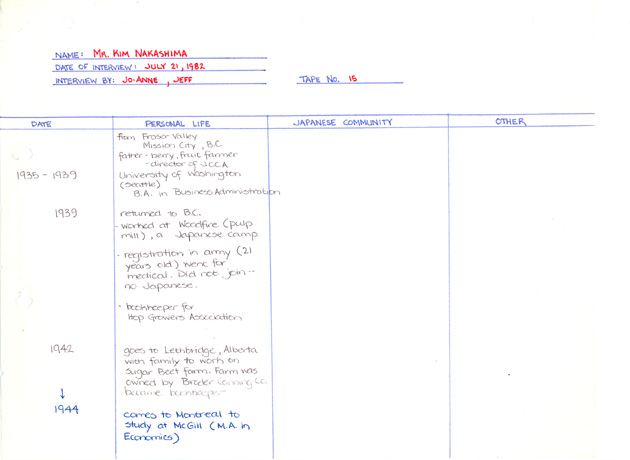 NAME: MR. KIM NAKASHIMA
DATE OF INTERVIEW: JULY 21, 1982
INTERVIEW BY: JO-ANNE, JEFF TAPE NO. 15
DATE PERSONAL LIFE JAPANESE COMMUNITY OTHER
from Fraser Valley
Mission City, B.C
father - berry, fruit farmer
- director of JCCA
1935 - 1939 University of Washington
(Seattle)
B.A. in Business Administration
1939 returned to B.C.
- worked at Woodfibre (pulp
mill), a Japanese camp
- registration in army (21
years old) went for
medical. Did not join --
no Japanese.
- bookkeeper for
Hop Growers Association
1942 goes to Lethbridge, Alberta
with family to work on
Sugar Beet farm. Farm was
owned by Broder Canning Co.
became
↓
1944 comes to Montreal to
study at McGill (M.A. in
Economics)